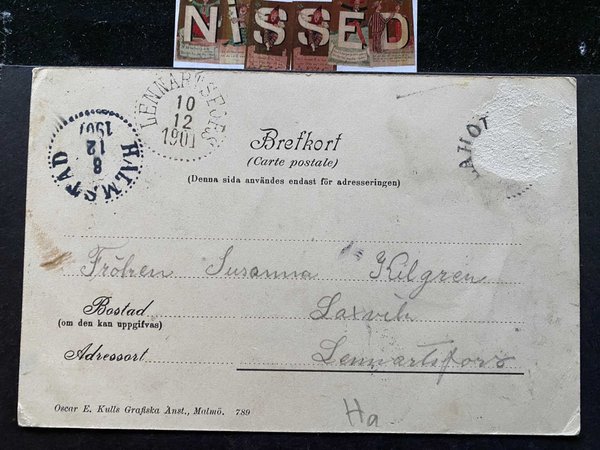 NISSED
LENNARTSFORS
10
12
1901
HALMSTAD
8
12
1901
LAHOL
Brefkort
(Carte postale)
(Denna sida användes endast för adresseringen)
Fröken Susanna Kilgren
Bostad
(om den kan uppgifvas)
Laxvik
Adressort
Lennartsfors
Oscar E. Kulls Grafiska Anst., Malmö. 789
Ha